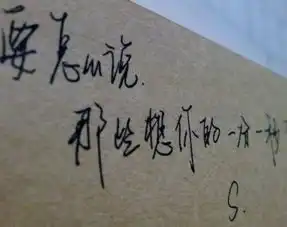 要怎么说.
那些想你的一分一秒
S.